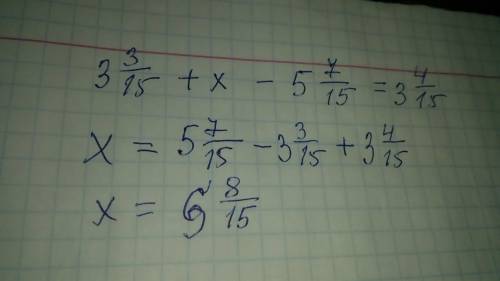 3 3/15 + x - 5 7/15 = 3 4/15
x = 5 7/15 - 3 3/15 + 3 4/15
x = 5 8/15